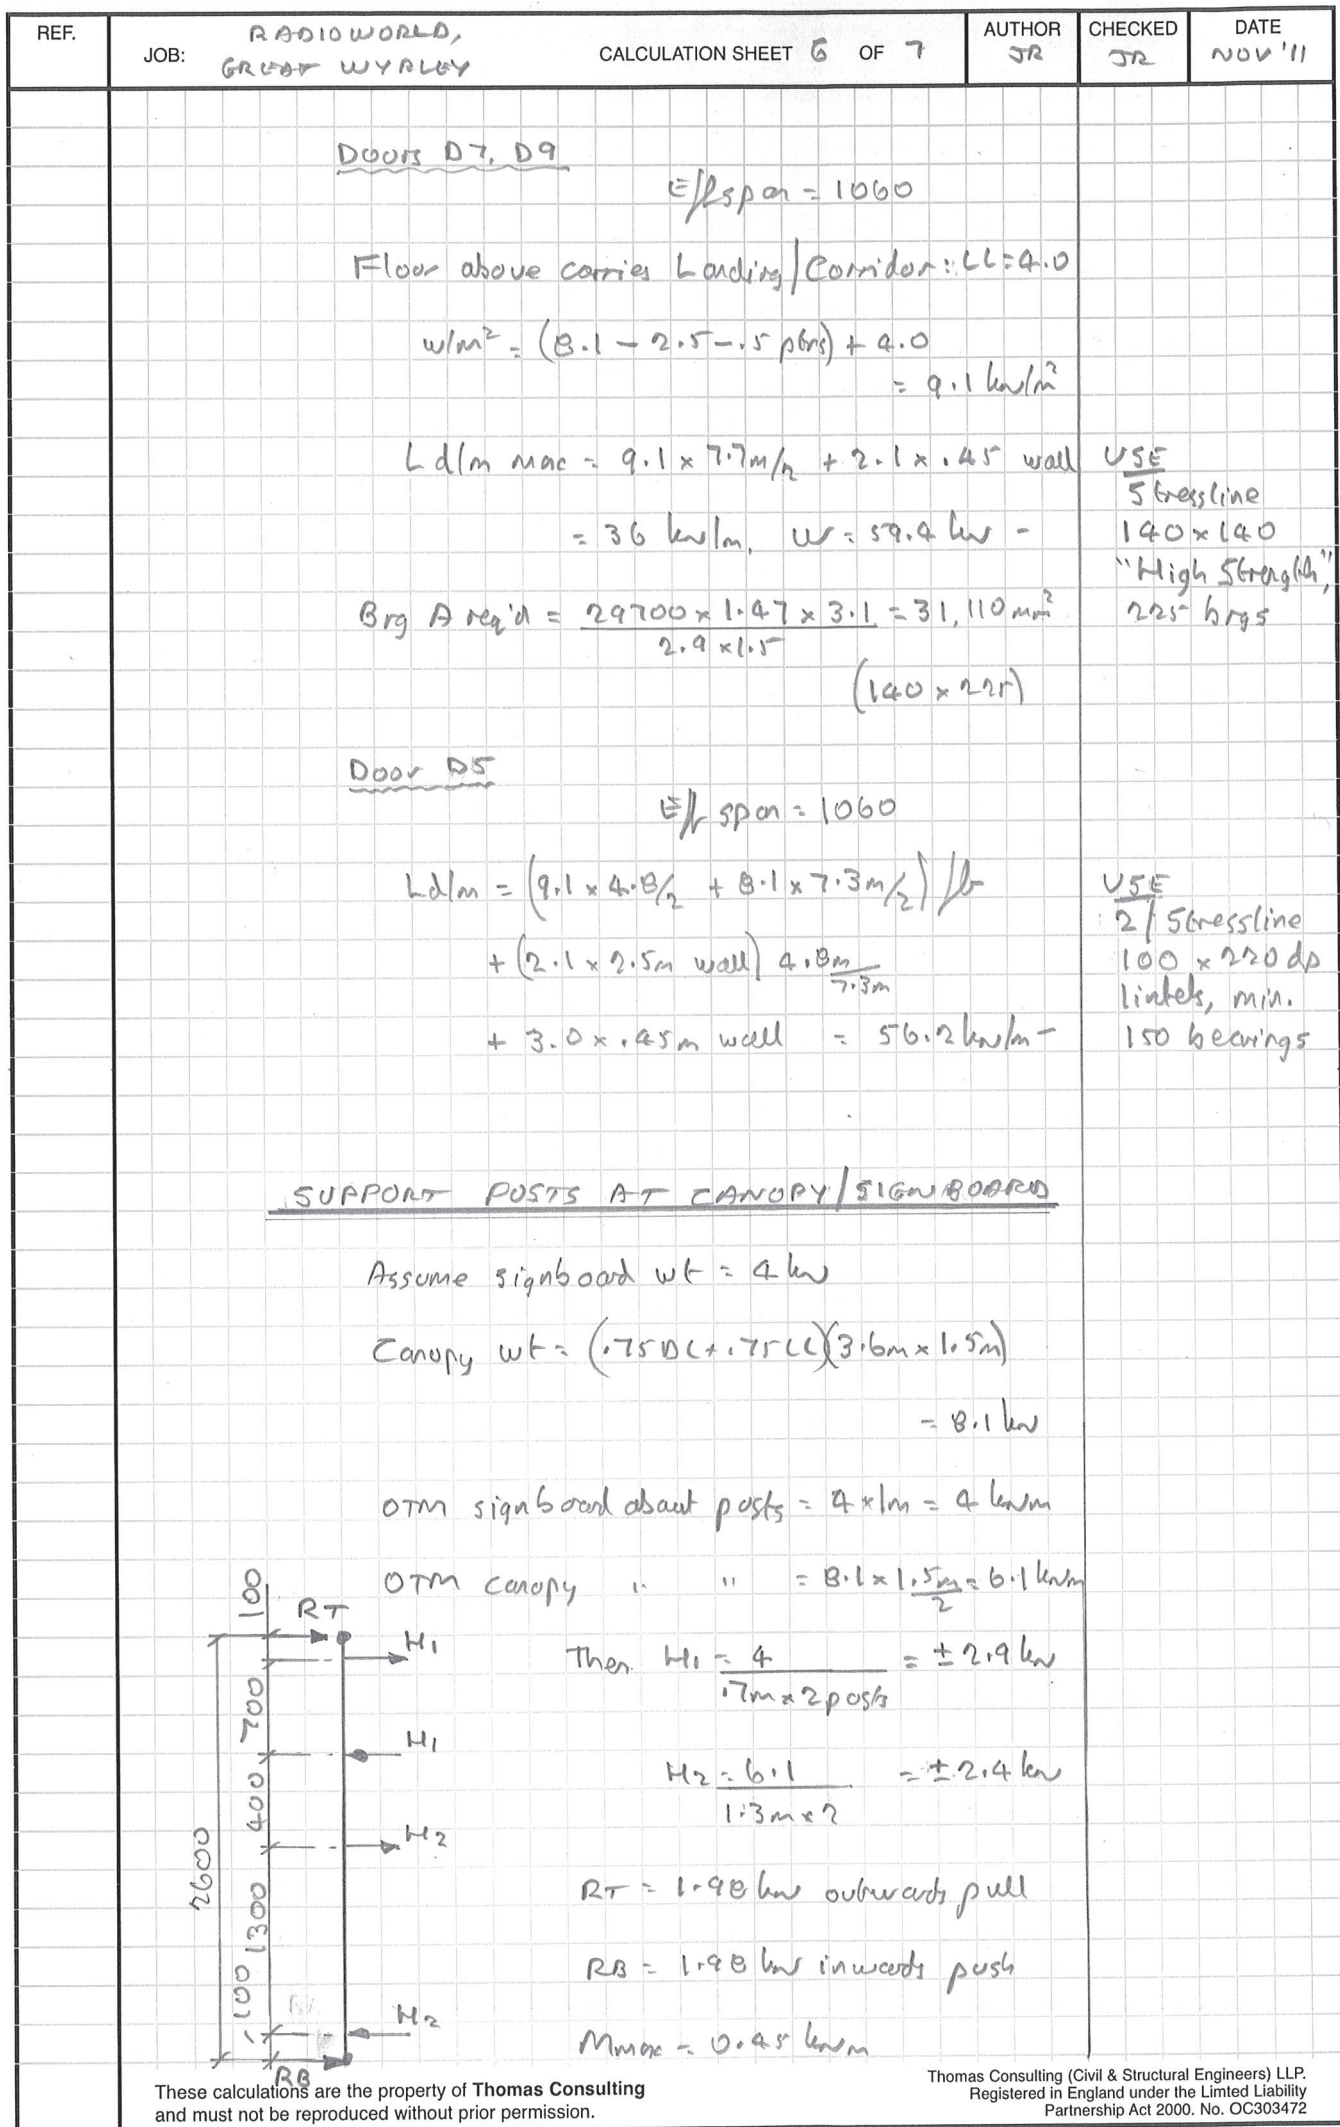 REF.
JOB: RADIOWORLD,
GREAT WYRLEY
CALCULATION SHEET 6 OF 7
AUTHOR
JR
CHECKED
JR
DATE
NOV '11
Doors D7, D9
Eff span = 1060
Floor above carries Landing/Corridor: LL=4.0
w/m² = (8.1 - 2.5 - .5 ptns) + 4.0
= 9.1 kN/m²
Ld/m max = 9.1 x 7.7m/2 + 2.1 x .45 wall
= 36 kN/m, W = 59.4 kN -
USE
Stressline
140 x 140
"High Strength",
225 brgs
Brg A req'd = 29700 x 1.47 x 3.1 = 31,110 mm²
2.9 x 1.5
(140 x 225)
Door D5
Eff span = 1060
Ld/m = (9.1 x 4.8/2 + 8.1 x 7.3m/2)
+ (2.1 x 2.5m wall) 4.8m
7.3m
+ 3.0 x .45m wall = 56.2 kN/m -
USE
2/ Stressline
100 x 220 dp
lintels, min.
150 bearings
SUPPORT POSTS AT CANOPY/SIGNBOARD
Assume signboard wt = 4 kN
Canopy wt = (.75DL + .75LL)(3.6m x 1.5m)
= 8.1 kN
OTM signboard about posts = 4 x 1m = 4 kNm
OTM canopy " " = 8.1 x 1.5m = 6.1 kNm
2
Then H1 = 4 = ± 2.9 kN
.7m x 2 posts
H2 = 6.1 = ± 2.4 kN
1.3m x 2
RT = 1.98 kN outwards pull
RB = 1.98 kN inwards push
Mmax = 0.45 kNm
100
RT
H1
700
H1
400
H2
2600
1300
100
H2
RB
These calculations are the property of Thomas Consulting
and must not be reproduced without prior permission.
Thomas Consulting (Civil & Structural Engineers) LLP.
Registered in England under the Limted Liability
Partnership Act 2000. No. OC303472